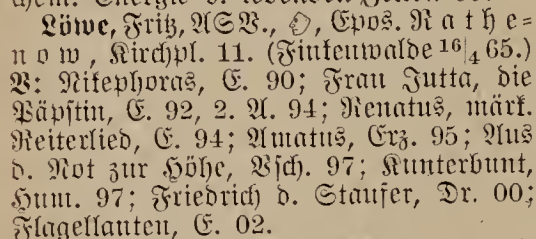 Löwe, Fritz, ASV., Epos. Rathe=
now, Kirchpl. 11. (Finkenwalde 16/4 65.)
V: Nikephoras, E. 90; Frau Jutta, die
Päpstin, E. 92, 2. A. 94; Renatus, märk.
Reiterlied, E. 94; Amatus, Erz. 95; Aus
d. Not zur Höhe, Vsch. 97; Kunterbunt,
Hum. 97; Friedrich d. Staufer, Dr. 00;
Flagellanten, E. 02.